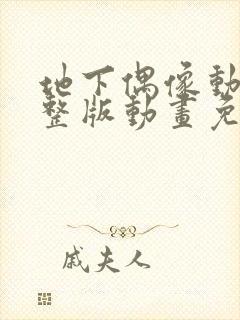 地下偶像動
整版動畫免
戚夫人